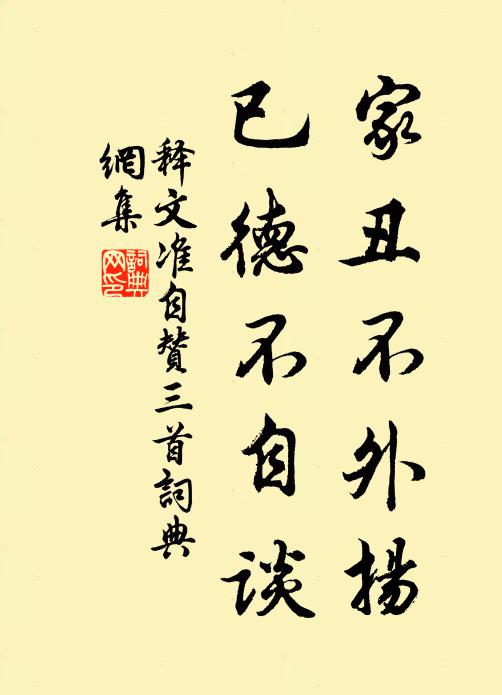 家丑不外揚
已德不自谈
释文准自赞三首詞典
網集
詞典網印